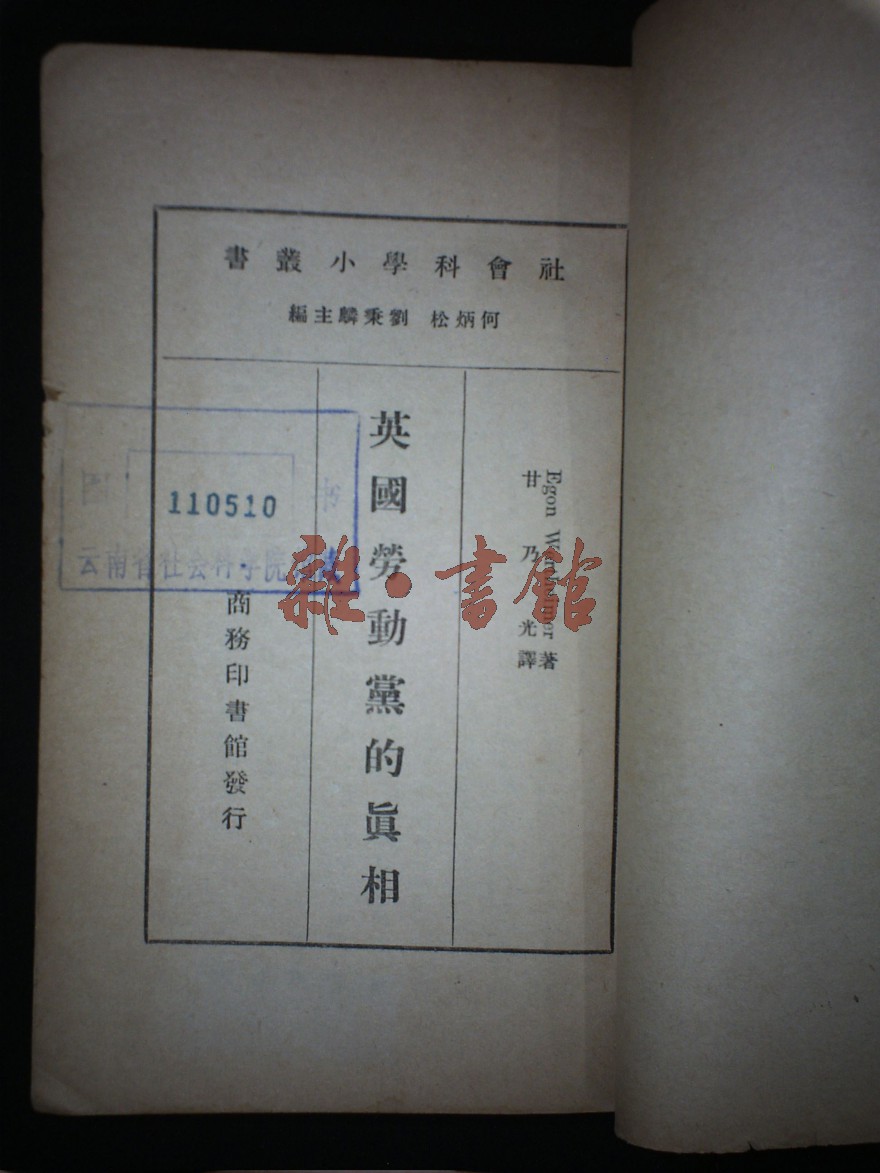 社會科學小叢書
何炳松 劉秉麟主編
Egon Wertheimer 著
甘乃光譯
英國勞動黨的眞相
商務印書館發行
110510
云南省社会科学院
雜·書館